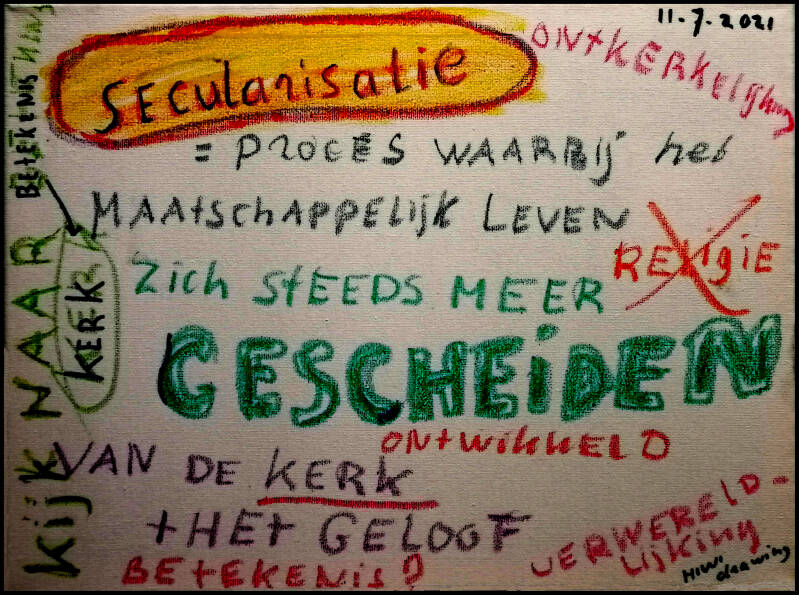 11.7.2021
SECularisatie
ONtKERKElijking
= PROCES WAARBIJ het
MAAtSCHAPPELIJK LEVEN
RELigiE
Zich StEEDS MEER
GESCHEiDEN
ONtWikkELD
VAN DE KERK
+ HEt GELOOF
BEtEKENis?
VERWERELD-
LijKiNg
Hiwi
drawing
Kijk NAAR
BEtEKENIS
KERK